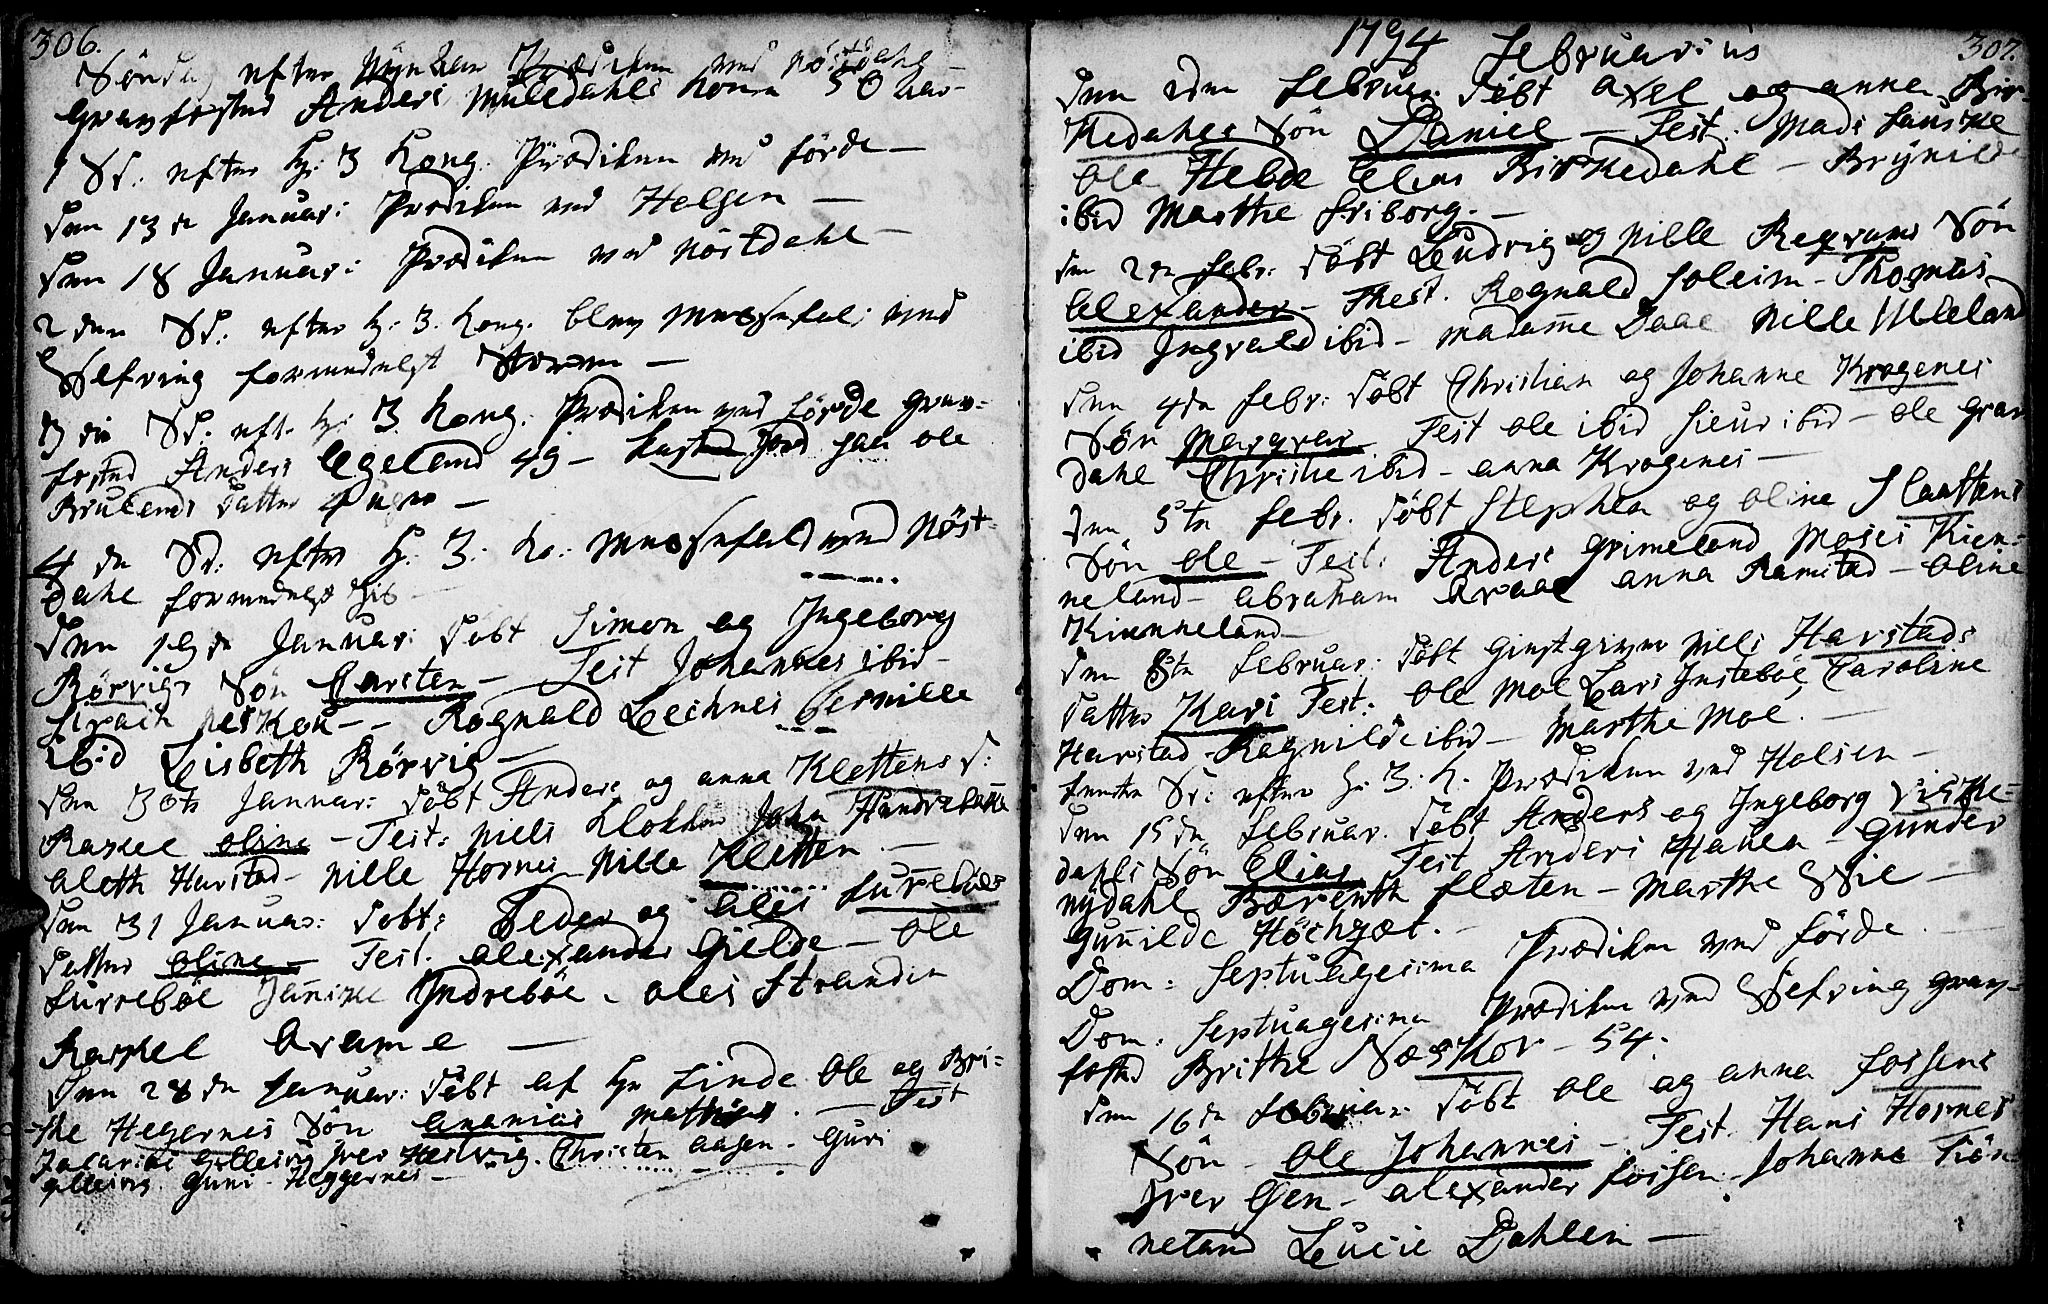 306.
Søndag efter Nyt Aar Prædiken ved Nøstdahl
Gravfæsted Anders Mulldahls Kone 50 aar -
1 Sd: efter H: 3 Kong. Prædiken ved Førde -
Den 13de Januar: Prædiken ved Helgen -
Den 18 Januar: Prædiken ved Nøstdahl -
2den Sd: efter H: 3. Kong. blev Messefald ved
Wefring formedelst Storm -
3die Sd: eft. H: 3 Kong. Prædiken ved Førde grav=
fæsted Anders Egeland 49 - Kasted Jord paa Ole
Brulands Datter 4 uger -
4de Sd: efter H: 3: Ko: Messefald ved Nøst=
dahl formedelst
Den 19de Januar: Døbt Simon og Ingeborg
Rørvigs Søn Carsten - Test Johannes ibid -
Neskou - - Rognald Lechnes Pernille
ibid Lisbeth Rørvig -
Den 30te Januar: Døbt Anders og Anna Klettens D:
Raskel Oline - Test: Niels Klokker John Hundvebakke
Aleth Harstad - Nille Hornes Nille Kletten -
Den 31 Januar: Døbt: Peder og Ales Furrebøes
Datter Oline - Test. Alexander Gielde - Ole
Furrebøe Janniche Indrebøe - Ales Stranden
Raskel Arame -
Den 28de Januar: Døbt af Hr Linde Ole og Bri=
the Hegernes Søn Ananias Mathias. - Test
Zacarias Gilleivig Iver Helvig. Christen Aasen - Guri
Gilleivig Guni - Heggernes -

1794 Februarius
307.
Den 2den Februar. Døbt Axel og Anna Bir-
kedahls Søn Daniel - Test. Mads Fauske
Ole Hebde Elias Birkedahl - Brynilde
ibid Marthe Friborg. -
den 2de Febr: Døbt Ludvig og Nille Reqvams Søn
Alexander - Thest. Rognald Soleim - Thomas
ibid Ingvald ibid - Madame Daae Nille Ulleland
Den 4de Febr: Døbt Christian og Johanne Krogenes
Søn Margvar Test Ole ibid Siur ibid - Ole Gran
dahl Christie ibid - Anna Krogenes -
Den 5te Febr. Døbt Stephen og Oline Slaattens
Søn Ole - Test: Anders Grimeland Moses Kien=
neland - Abraham Araae Anna Ramstad - Oline
Kiønneland -
Den 8te Februar: Døbt Giestgiver Niels Harstads
Datter Kari Test: Ole Moe Lars Instebøe Caroline
Harstad - Ragnilde ibid - Marthe Moe. -
Femte Sd: efter H: 3. K. Prædiken ved Halsen -
Den 15de Februar. Døbt Anders og Ingeborg Viske=
dahls Søn Elias Test Anders Haaen - Gunder
Nydahl Bærenth Flæten - Marthe Wie -
Gunnilde Høehgæt. -
Dom: Septuagesima Prædiken ved Førde. -
Dom. Septuagesima Prædiken ved Wefring grav=
fæsted Brithe Næskor - 54.
Den 16de Februar. Døbt Ole og Anna Fossens
Søn - Ole Johannes - Test. Hans Hornes
Iver Gen - Alexander Fossen - Johanne Tiøn
neland Lucie Dahlen -